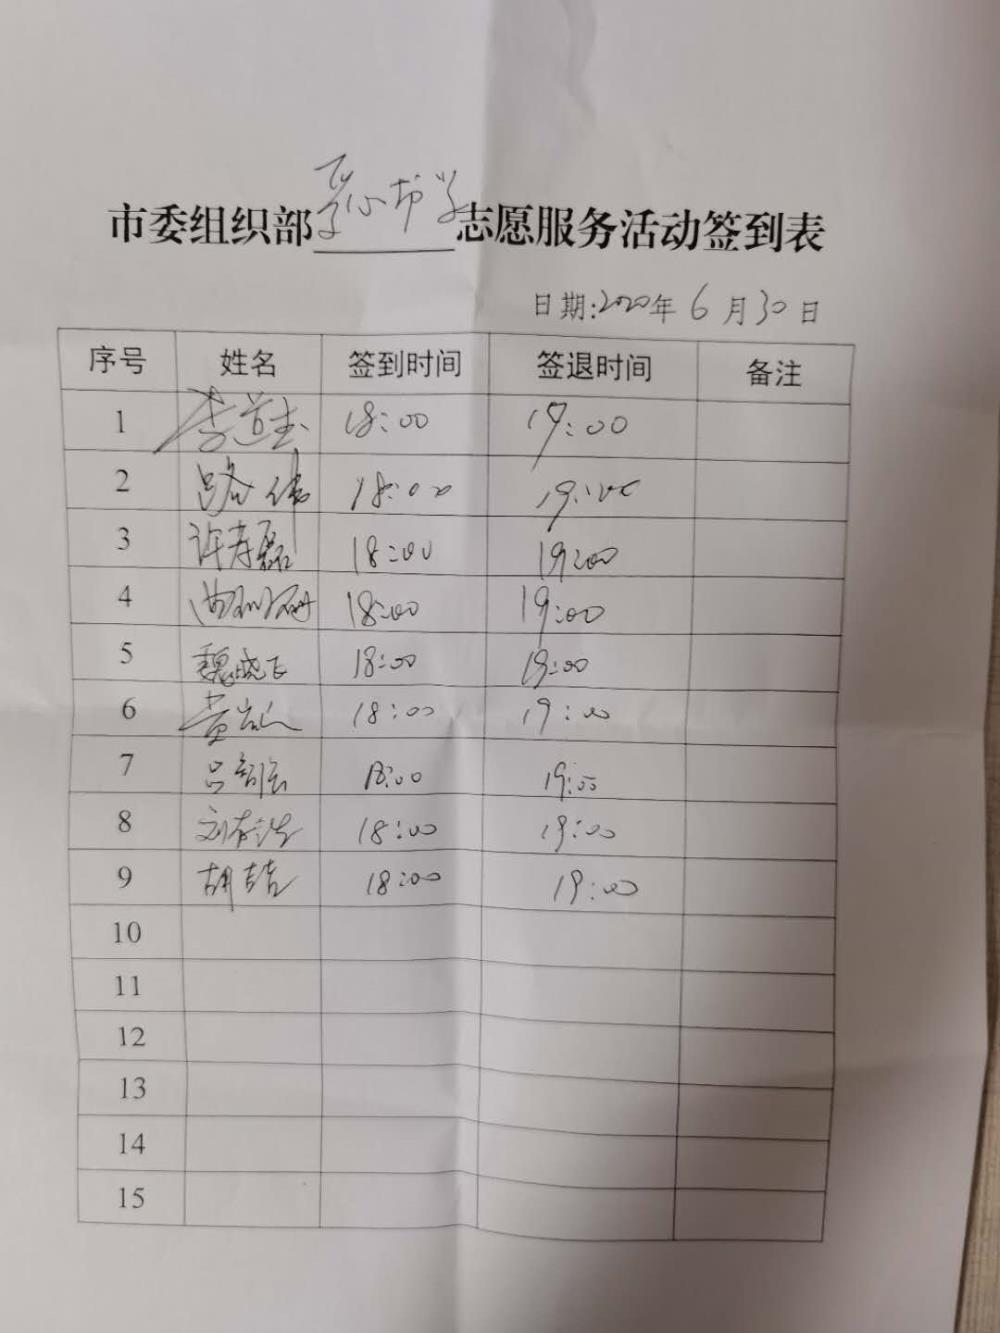 市委组织部爱心书屋志愿服务活动签到表
日期:2020年6月30日
序号 姓名 签到时间 签退时间 备注
1 李 18:00 19:00
2 路伟 18:00 19:00
3 许寿磊 18:00 19:00
4 18:00 19:00
5 魏晓飞 18:00 19:00
6 黄 18:00 19:00
7 吕 18:00 19:00
8 刘存浩 18:00 19:00
9 胡喆 18:00 19:00
10
11
12
13
14
15